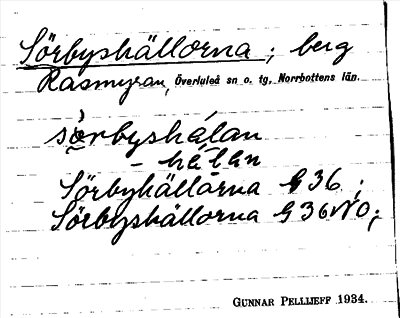 Sörbyshällorna ; berg
Rasmyran, Överluleå sn o. tg, Norrbottens län.
sörbyshálan
- hálan
Sörbyhällarna G 36 ;
Sörbyshällorna G 36 NO ;
GUNNAR PELLIJEFF 1934.